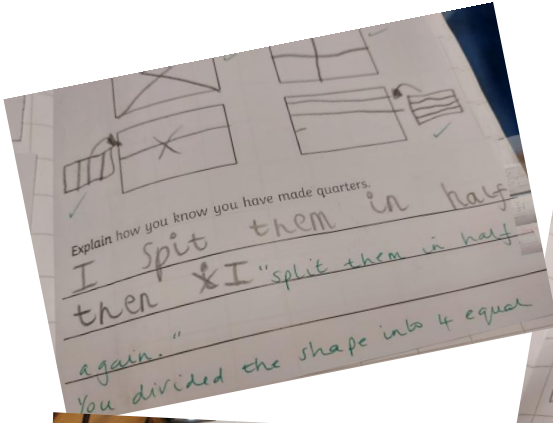 Explain how you know you have made quarters.
I spit them in half
then I "split them in half
again."
You divided the shape into 4 equal